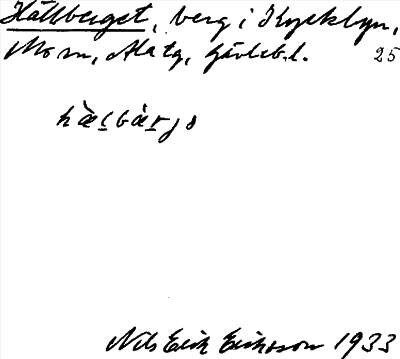 Hällberget, berg i Kycklyn,
Mo sn, Ala tg, Gävlebl. 25
hæ̀ḷbæ̀rjə
Nils Erik Eriksson 1933